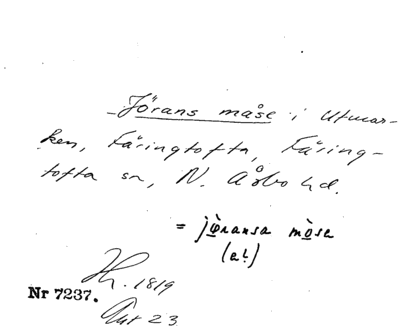 Jörans måse i Utmar-
ken, Färingtofta, Färing-
tofta sn, N. Åsbo hd.
= jöransa måse
(a!)
H. 1819
Nr 7237.
Aut 23